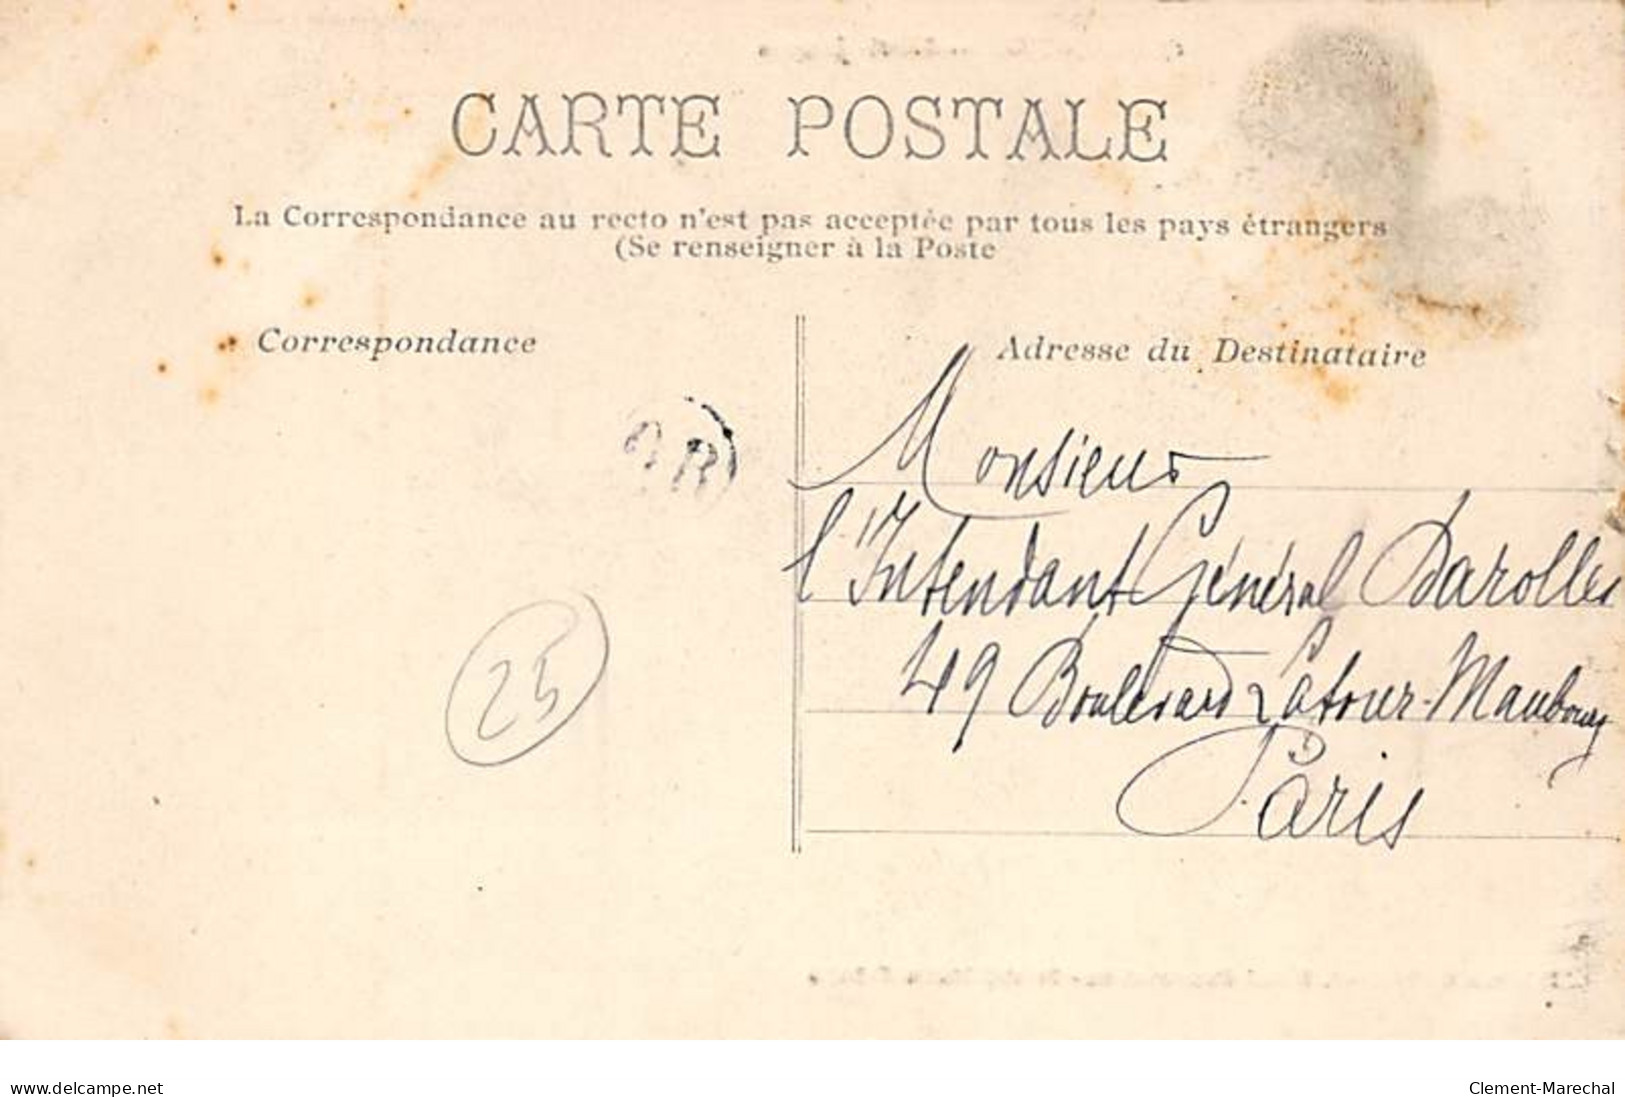 CARTE POSTALE
La Correspondance au recto n'est pas acceptée par tous les pays étrangers
(Se renseigner à la Poste
Correspondance
Adresse du Destinataire
Monsieur
l'Intendant Général Darolles
49 Boulevard Latour-Maubourg
Paris
25
www.delcampe.net
Clement-Marechal